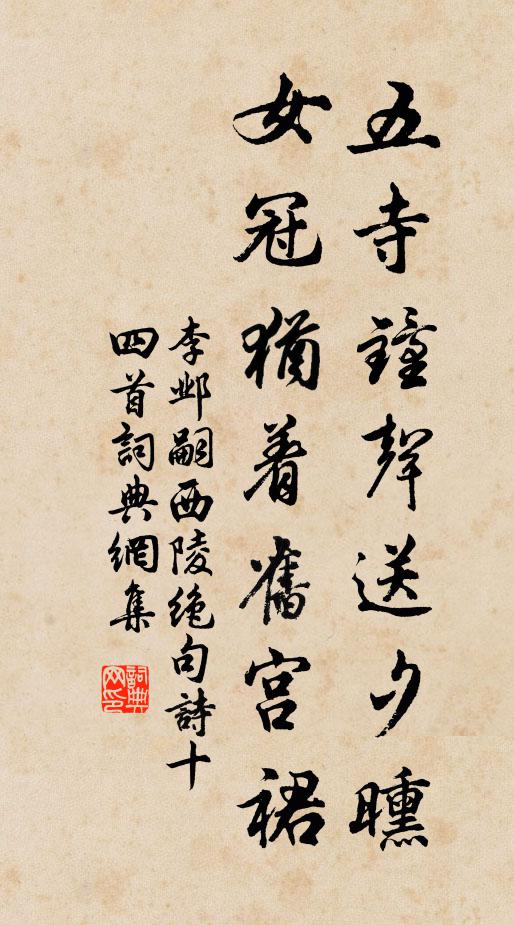 五寺鐘聲送夕曛
女冠猶着舊宮裙
李邺嗣西陵绝句詩十
四首詞典網集
詞典网印